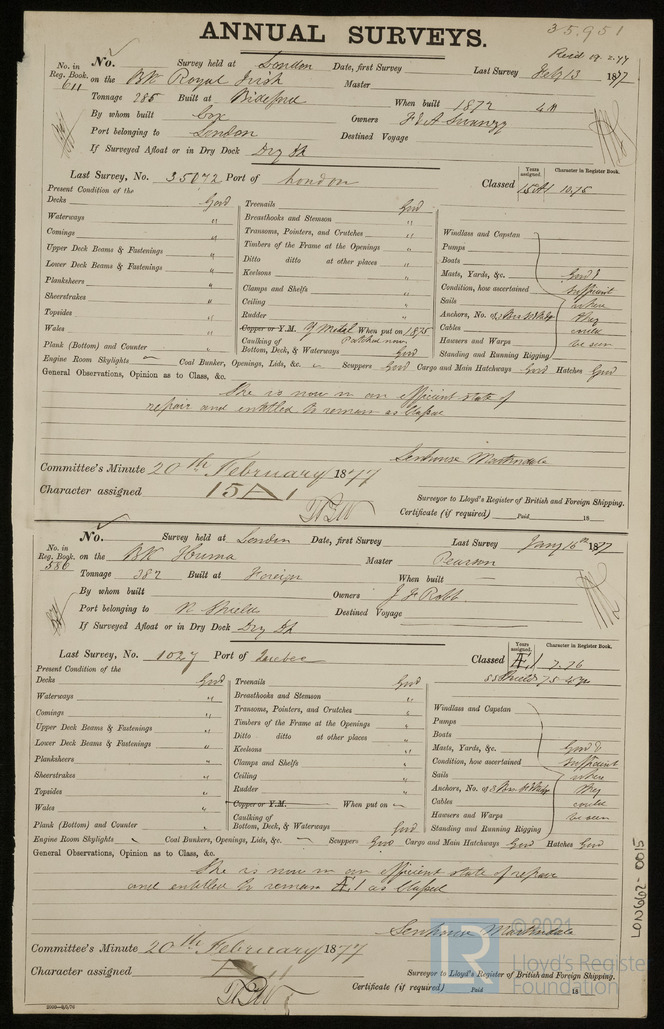 35951
ANNUAL SURVEYS.
No. in Reg. Book. 611
No. Survey held at London Date, first Survey Last Survey Feb 13 1877
on the Bk Royal Irish Master
Tonnage 285 Built at Bideford When built 1872
By whom built Cox Owners
Port belonging to London Destined Voyage
If Surveyed Afloat or in Dry Dock Dry Dk
Last Survey, No. 35072 Port of London Classed Years assigned. 15A1 Character in Register Book. 10.76
Present Condition of the
Decks Good
Waterways "
Comings "
Upper Deck Beams & Fastenings "
Lower Deck Beams & Fastenings "
Planksheers "
Sheerstrakes "
Topsides "
Wales "
Plank (Bottom) and Counter
Treenails Good
Breasthooks and Stemson "
Transoms, Pointers, and Crutches "
Timbers of the Frame at the Openings "
Ditto ditto at other places "
Keelsons "
Clamps and Shelfs "
Ceiling "
Rudder "
Copper or Y.M. Y Metal When put on 1875
Caulking of Bottom, Deck, & Waterways Good
Windlass and Capstan
Pumps
Boats
Masts, Yards, &c. Good &
Condition, how ascertained sufficient
Sails where
Anchors, No. of they
Cables could
Hawsers and Warps be seen
Standing and Running Rigging
Engine Room Skylights Coal Bunker, Openings, Lids, &c. Scuppers Good Cargo and Main Hatchways Good Hatches Good
General Observations, Opinion as to Class, &c.
She is now in an efficient state of
repair and entitled to remain as Classed
Senhouse Martindale
Committee's Minute 20th February 1877
Character assigned 15A1
Surveyor to Lloyd's Register of British and Foreign Shipping.
Certificate (if required) Paid 18
No. in Reg. Book. 586
No. Survey held at London Date, first Survey Last Survey Jany 16th 1877
on the Bk Huma Master Pearson
Tonnage 382 Built at Foreign When built
By whom built Owners J F Robb
Port belonging to N Shields Destined Voyage
If Surveyed Afloat or in Dry Dock Dry Dk
Last Survey, No. 1027 Port of Quebec Classed Years assigned. Æ1 Character in Register Book. 7.76
Present Condition of the
Decks Good
Waterways "
Comings "
Upper Deck Beams & Fastenings "
Lower Deck Beams & Fastenings "
Planksheers "
Sheerstrakes "
Topsides "
Wales "
Plank (Bottom) and Counter
Treenails Good
Breasthooks and Stemson "
Transoms, Pointers, and Crutches "
Timbers of the Frame at the Openings "
Ditto ditto at other places "
Keelsons "
Clamps and Shelfs "
Ceiling "
Rudder "
Copper or Y.M. When put on
Caulking of Bottom, Deck, & Waterways Good
Windlass and Capstan
Pumps
Boats
Masts, Yards, &c. Good &
Condition, how ascertained sufficient
Sails where
Anchors, No. of they
Cables could
Hawsers and Warps be seen
Standing and Running Rigging
Engine Room Skylights Coal Bunkers, Openings, Lids, &c. Scuppers Good Cargo and Main Hatchways Good Hatches Good
General Observations, Opinion as to Class, &c.
She is now in an efficient state of repair
and entitled to remain Æ1 as Classed
Senhouse Martindale
Committee's Minute 20th February 1877
Character assigned
Surveyor to Lloyd's Register of British and Foreign Shipping.
Certificate (if required) Paid 18
LON662-0015
© 2021
Lloyd's Register
Foundation